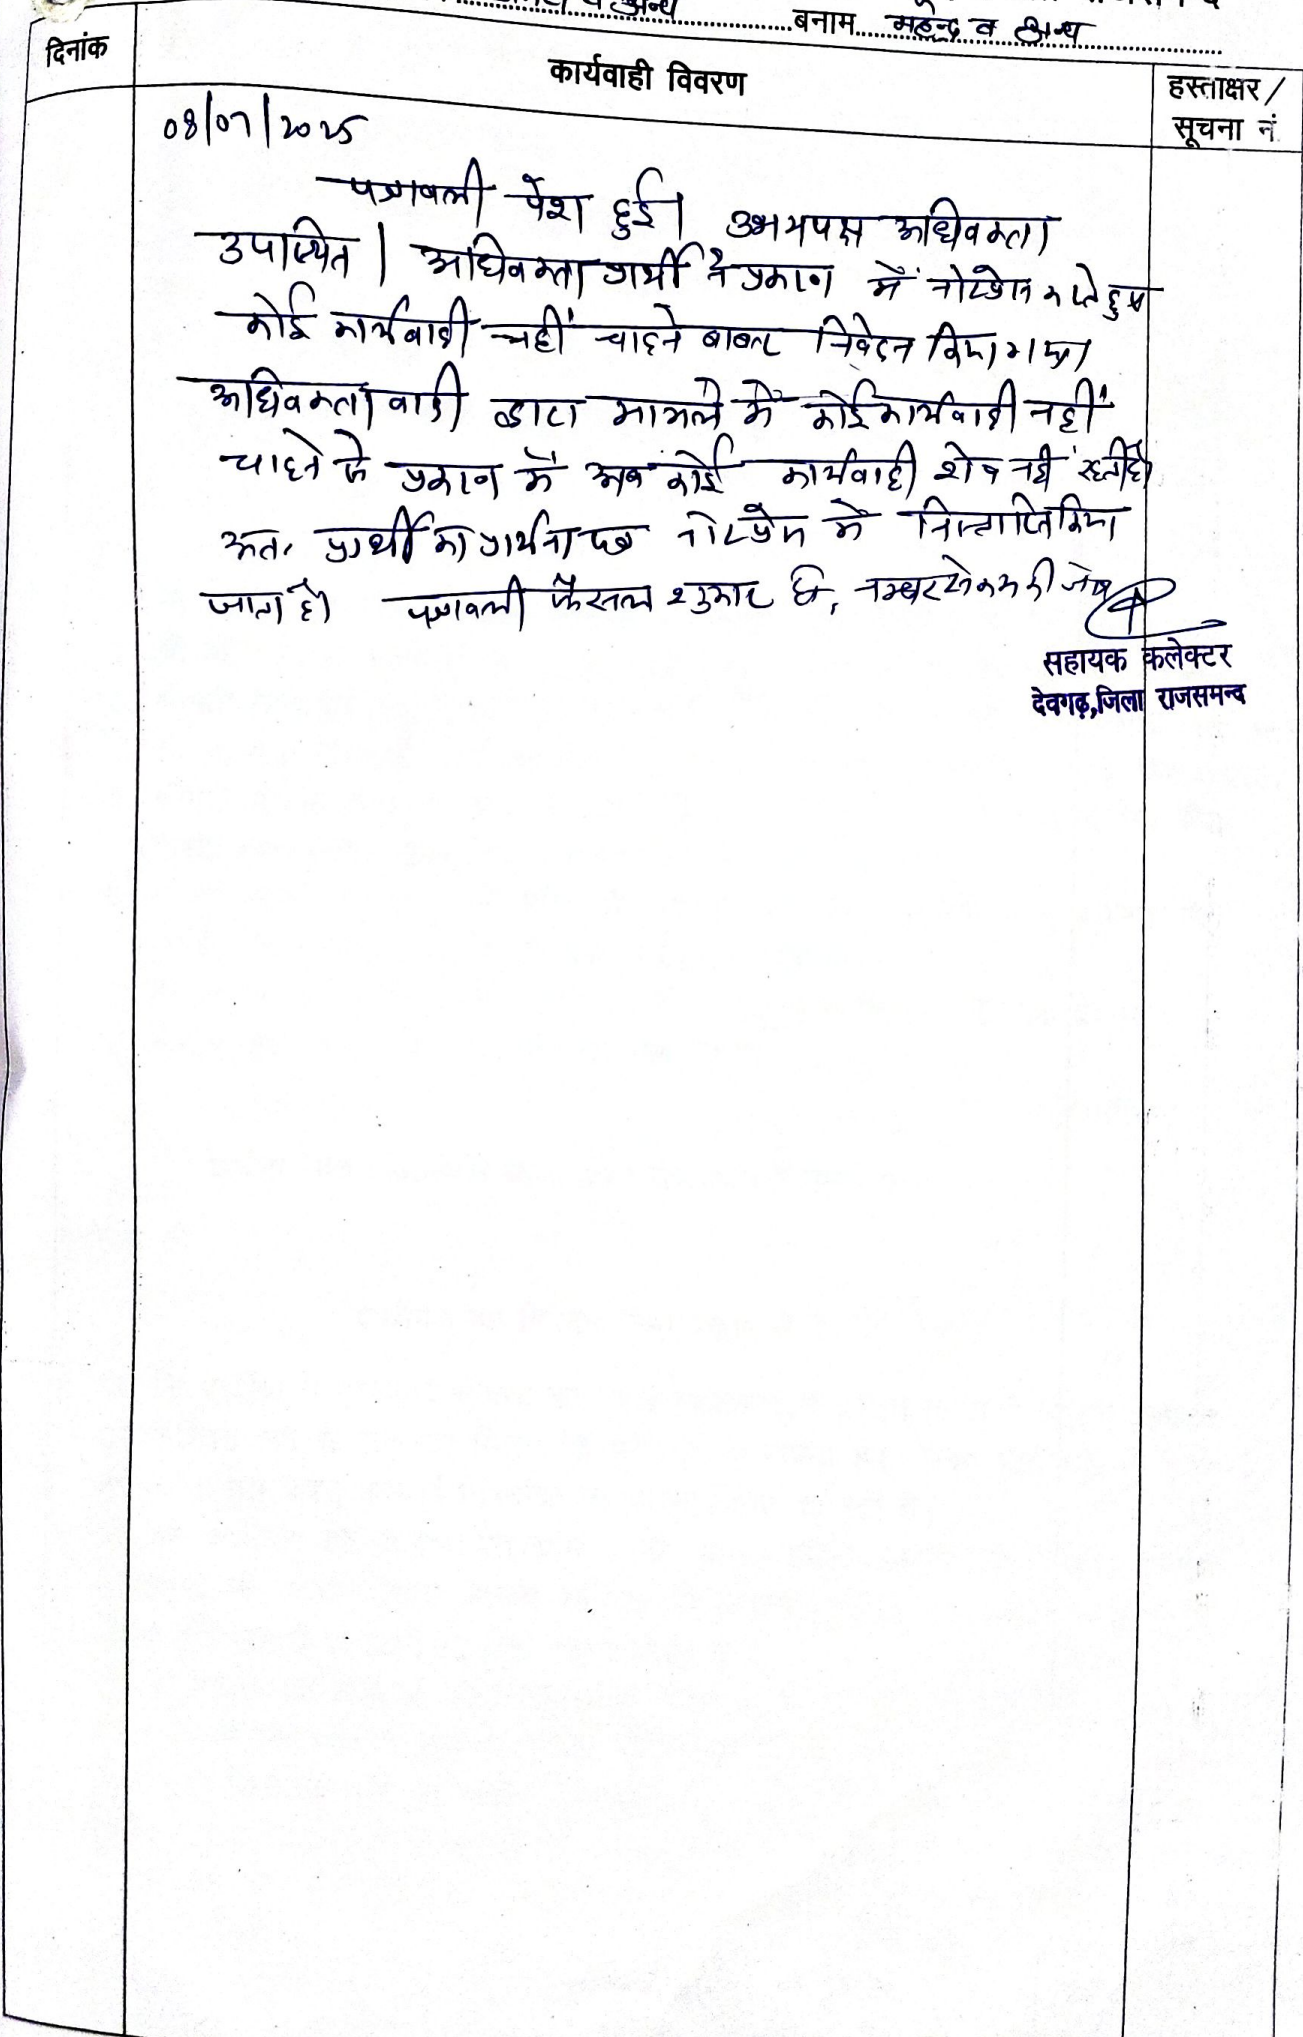 व अन्य बनाम महेन्द्र व अन्य
दिनांक
कार्यवाही विवरण
हस्ताक्षर /
सूचना नं.
08/07/2025
पत्रावली पेश हुई। उभयपक्ष अधिवक्ता
उपस्थित। अधिवक्ता प्रार्थी ने प्रकरण में नोटप्रेस करते हुए
कोई कार्यवाही नहीं चाहने बाबत निवेदन किया गया।
अधिवक्ता वादी द्वारा मामले में कोई कार्यवाही नहीं
चाहने से प्रकरण में अब कोई कार्यवाही शेष नहीं रहती है।
अतः प्रार्थी का प्रार्थना पत्र नोटप्रेस में निस्तारित किया
जाता है। पत्रावली फैसल शुमार हो, नम्बर से कम की जावे।
सहायक कलेक्टर
देवगढ़,जिला राजसमन्द